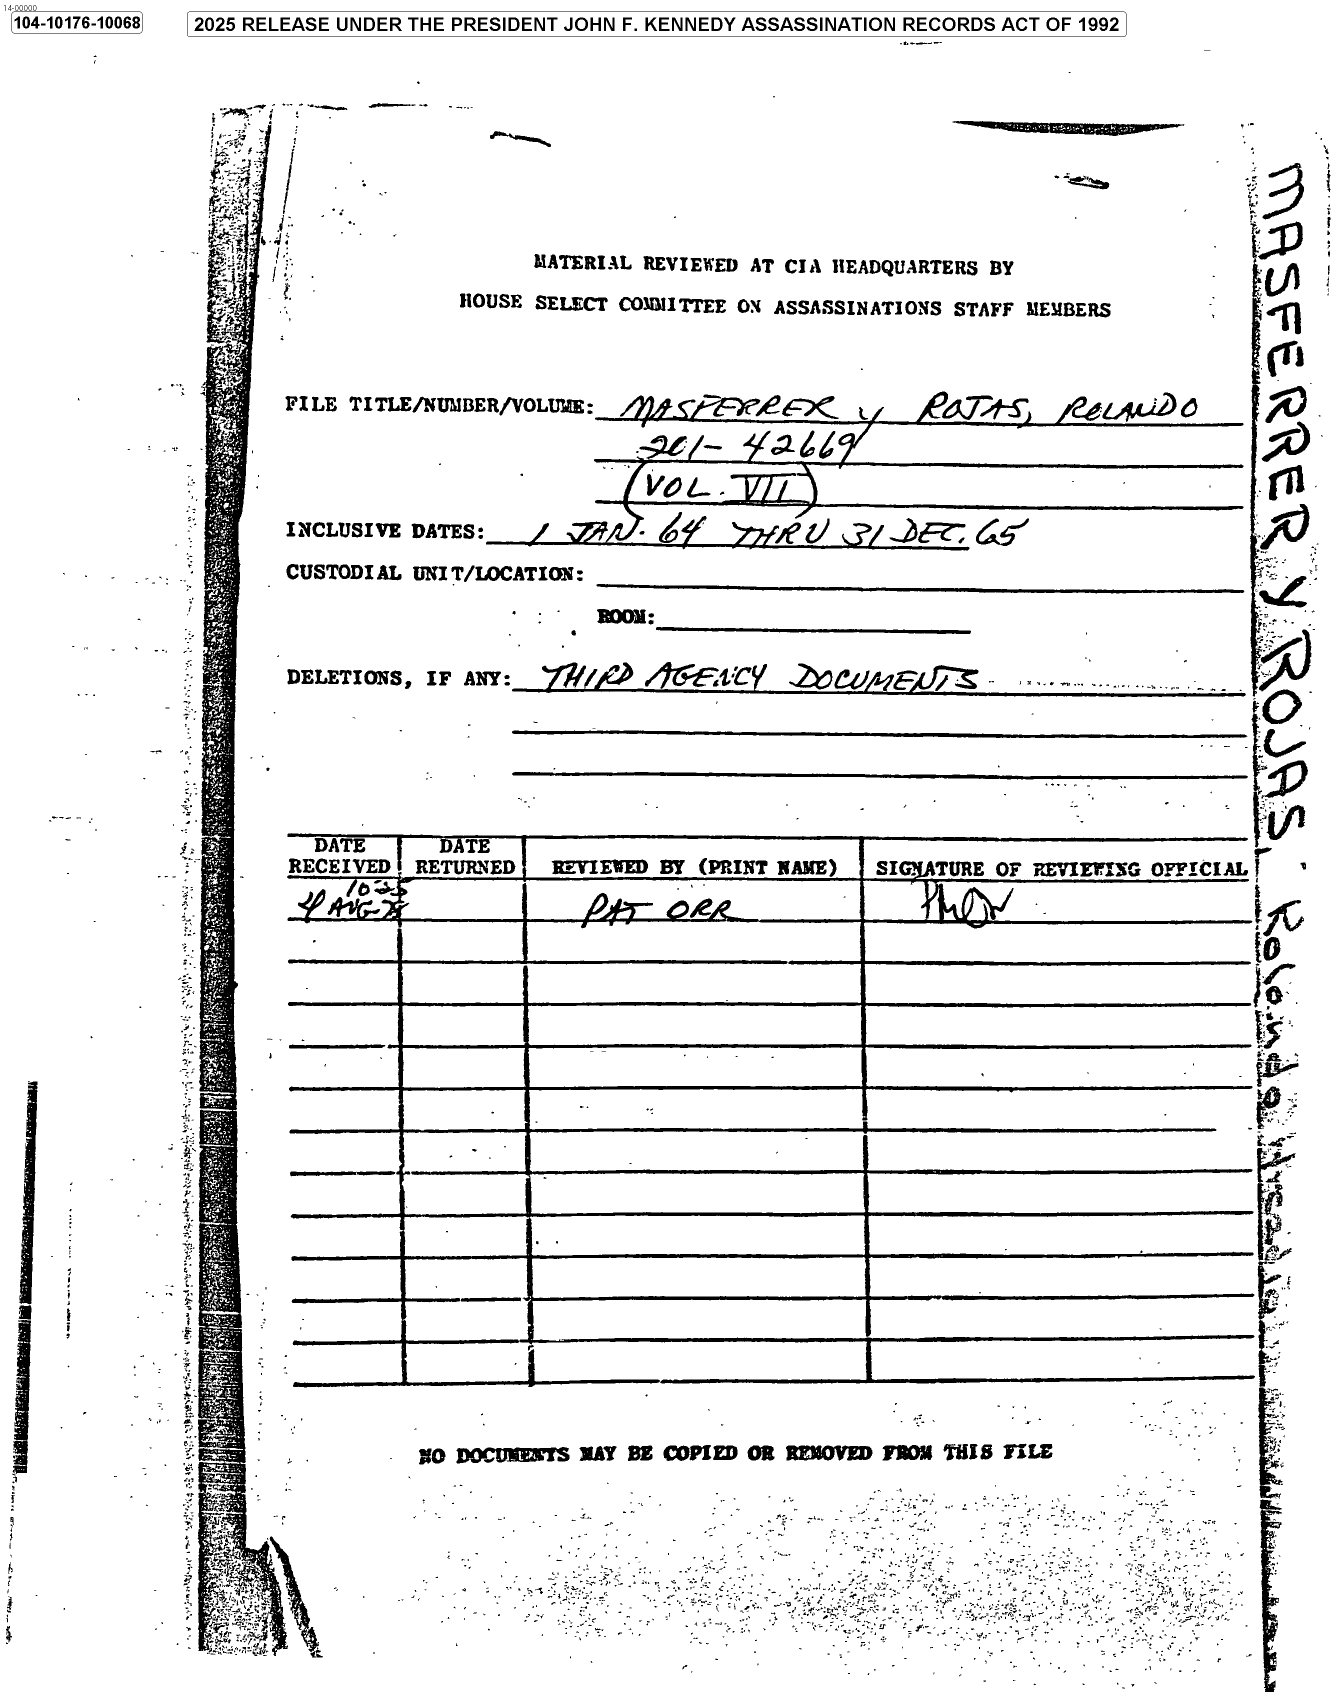 14-00000
104-10176-10068
2025 RELEASE UNDER THE PRESIDENT JOHN F. KENNEDY ASSASSINATION RECORDS ACT OF 1992
MATERIAL REVIEWED AT CIA HEADQUARTERS BY
HOUSE SELECT COMMITTEE ON ASSASSINATIONS STAFF MEMBERS
FILE TITLE/NUMBER/VOLUME: MASFERRER y ROJAS, ROLANDO
201-42669
(VOL. VII)
INCLUSIVE DATES: 1 JAN. 64 THRU 31 DEC. 65
CUSTODIAL UNIT/LOCATION:
ROOM:
DELETIONS, IF ANY: THIRD AGENCY DOCUMENTS
DATE RECEIVED DATE RETURNED REVIEWED BY (PRINT NAME) SIGNATURE OF REVIEWING OFFICIAL
4 AUG 78 PAT ORR
NO DOCUMENTS MAY BE COPIED OR REMOVED FROM THIS FILE
MASFERRER y ROJAS, Rolando